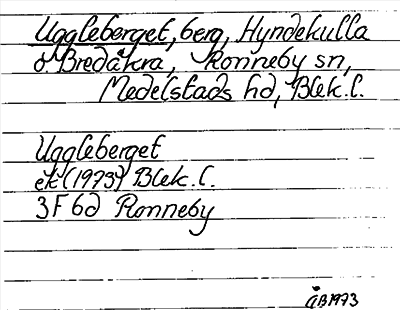 Uggleberget, berg, Hyndekulla
o. Bredåkra, Ronneby sn,
Medelstads hd, Blek. l.
Uggleberget
ek (1973) Blek. l.
3F 6d Ronneby
ÅB1973